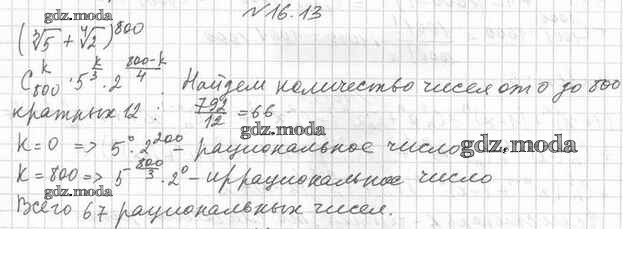 №16.13
gdz.moda
(∛5 + ∜2)^800
C_800^k · 5^(k/3) · 2^((800-k)/4). Найдем количество чисел от 0 до 800
кратных 12 : 792/12 = 66
gdz.moda
gdz.moda
K=0 => 5^0 · 2^200 – рациональное число
K=800 => 5^(800/3) · 2^0 – иррациональное число
Всего 67 рациональных чисел.